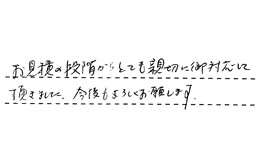 お見積の段階からとても親切に御対応して
頂きました。今後もよろしくお願します。